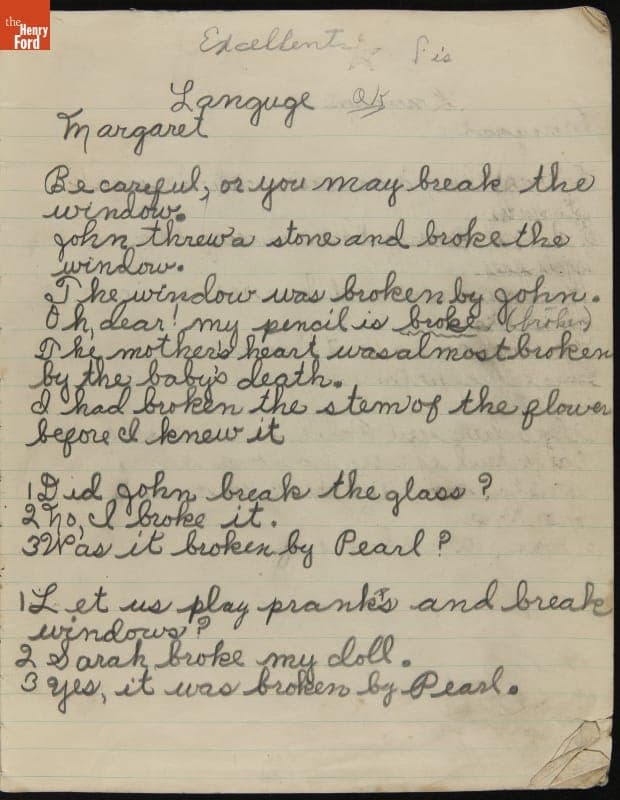 the
Henry
Ford
Excellent
P is
Languge OK
Margaret
Be careful, or you may break the
window.
John threw a stone and broke the
window.
The window was broken by John.
Oh, dear! my pencil is broke. (broken)
The mother's heart was almost broken
by the baby's death.
I had broken the stem of the flower
before I knew it
1 Did John break the glass?
2 No, I broke it.
3 Was it broken by Pearl?
1 Let us play pranks and break
windows?
2 Sarah broke my doll.
3 Yes, it was broken by Pearl.